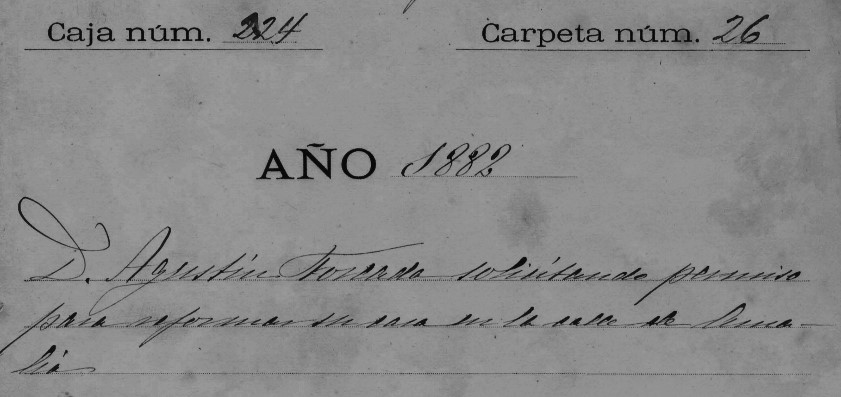 Caja núm. 224 Carpeta núm. 26
AÑO 1882
D. Agustín solicitando permiso
para reformar su casa en la calle de Ama-
lia